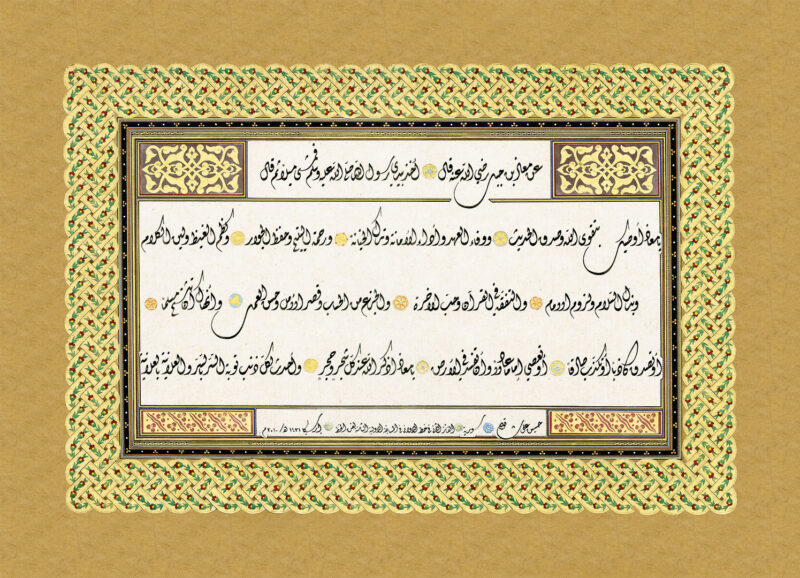 عن معاذ بن جبل رضي الله عنه قال أخذ بيدي رسول الله صلى الله عليه وسلم فمشى ميلا ثم قال
يا معاذ أوصيك بتقوى الله وصدق الحديث ووفاء العهد وأداء الأمانة وترك الخيانة ورحمة اليتيم وحفظ الجوار وكظم الغيظ ولين الكلام
وبذل السلام ولزوم الإمام والتفقه في القرآن وحب الآخرة والجزع من الحساب وقصر الأمل وحسن العمل وأنهاك أن تشتم مسلما
أو تصدق كاذبا أو تكذب صادقا أو تعصي إماما عادلا وأن تفسد في الأرض يا معاذ اذكر الله عند كل شجر وحجر وأحدث لكل ذنب توبة السر بالسر والعلانية بالعلانية
سورية